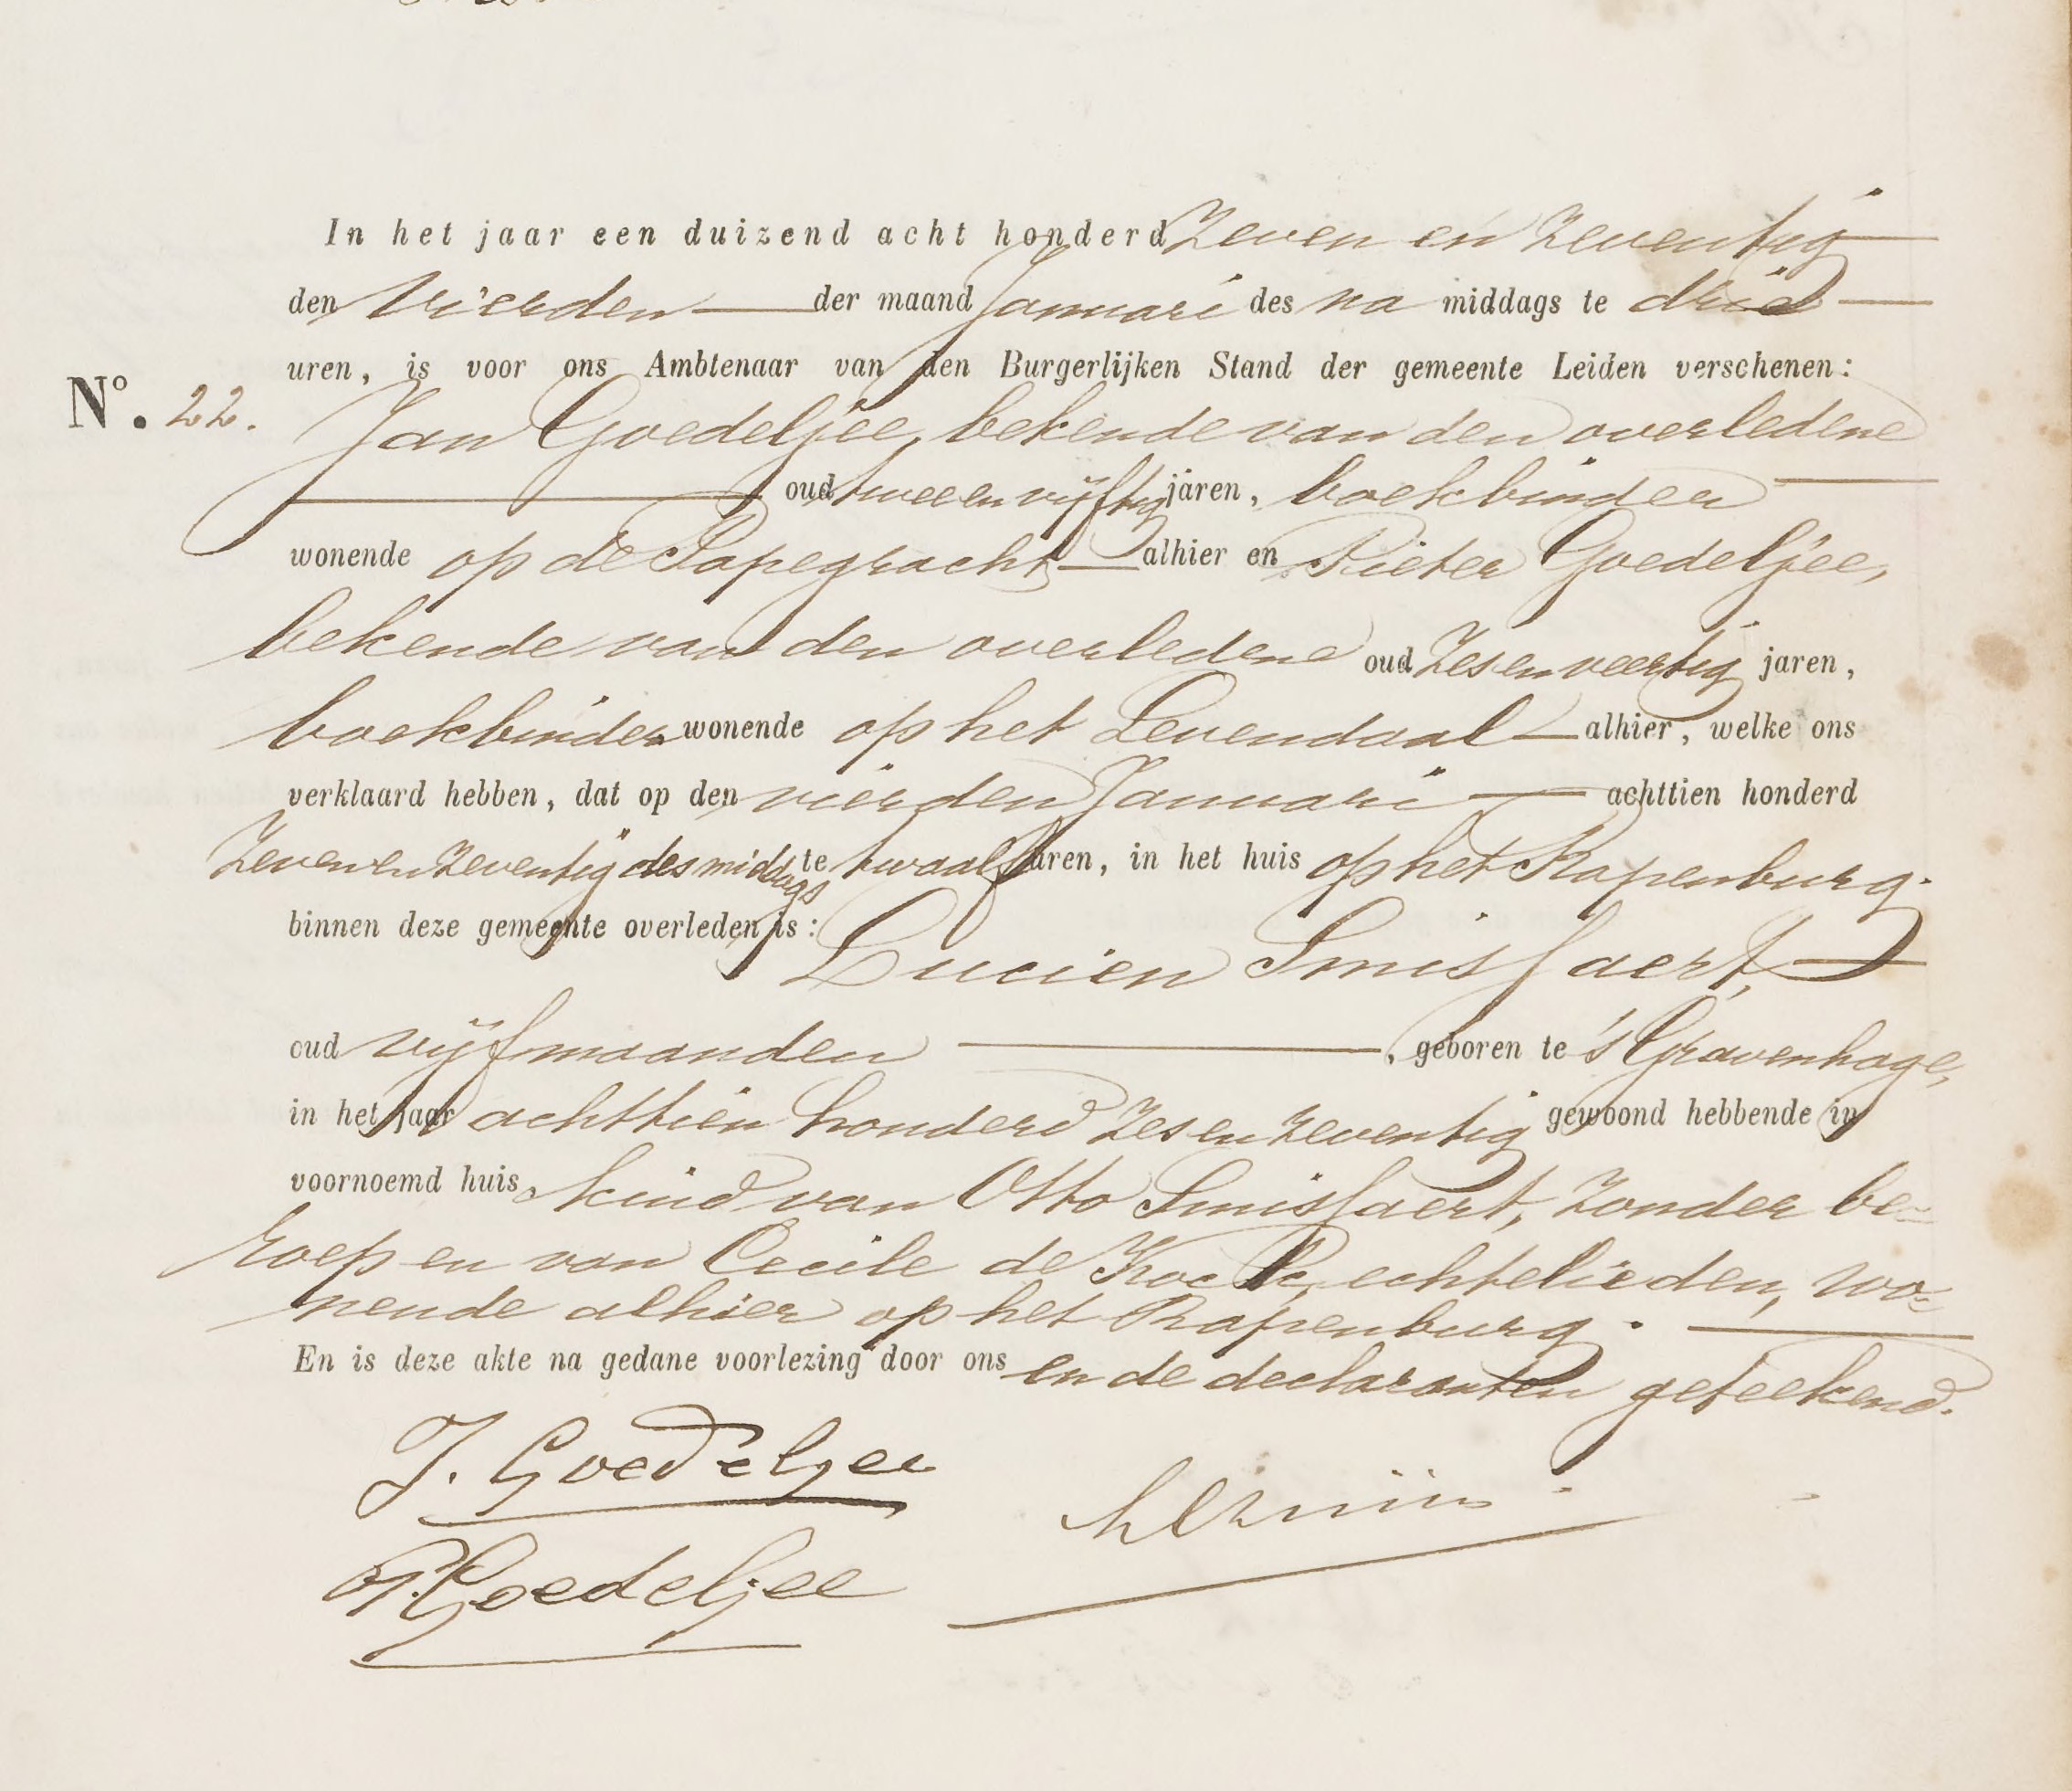 In het jaar een duizend acht honderd Zeven en Zeventig
den Vierden der maand Januari des na middags te drie
uren, is voor ons Ambtenaar van den Burgerlijken Stand der gemeente Leiden verschenen:
No. 22. Jan Goedeljee, bekende van den overledene
oud twee en vijftig jaren, boekbinder
wonende op de Papegracht alhier en Pieter Goedeljee,
bekende van den overledene oud Zes en veertig jaren,
boekbinder wonende op het Levendaal alhier, welke ons
verklaard hebben, dat op den vierden Januari achttien honderd
Zeven en Zeventig des middags te twaalf uren, in het huis op het Rapenburg
binnen deze gemeente overleden is:
Lucien Smissaert,
oud vijf maanden, geboren te 's Gravenhage,
in het jaar achttien honderd Zes en Zeventig gewoond hebbende in
voornoemd huis, kind van Otto Smissaert, Zonder be=
roep en van Cecile de Kock, echtelieden, wo=
nende alhier op het Rapenburg.
En is deze akte na gedane voorlezing door ons en de declaranten geteekend.
J. Goedeljee
P. Goedeljee